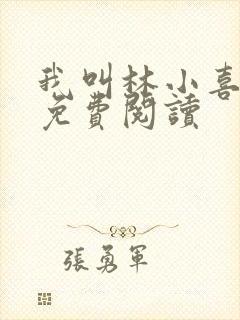 我叫林小喜
免費閱讀
張勇軍